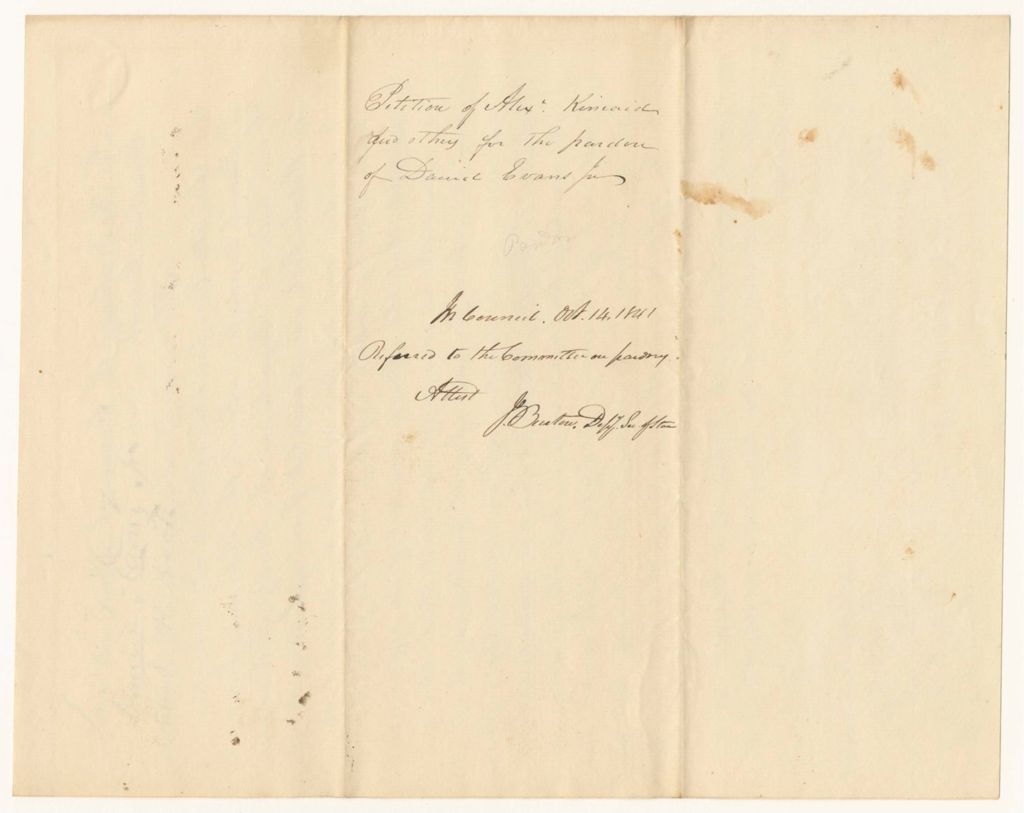 Petition of Alexr. Kincaid
and others for the pardon
of Daniel Evans Jr
Pardon
In Council. Oct. 14. 1841
Referred to the Committee on pardons.
Attest
J. Burton. Depy. Sec of State